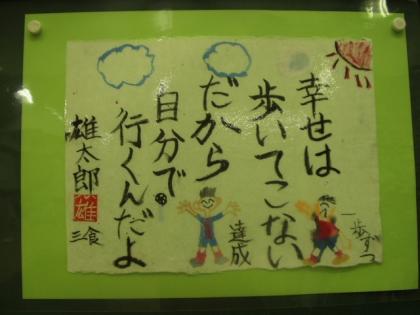 幸せは
歩いてこない
だから
自分で
行くんだよ
一歩ずつ
達成
雄太郎
雄
三食